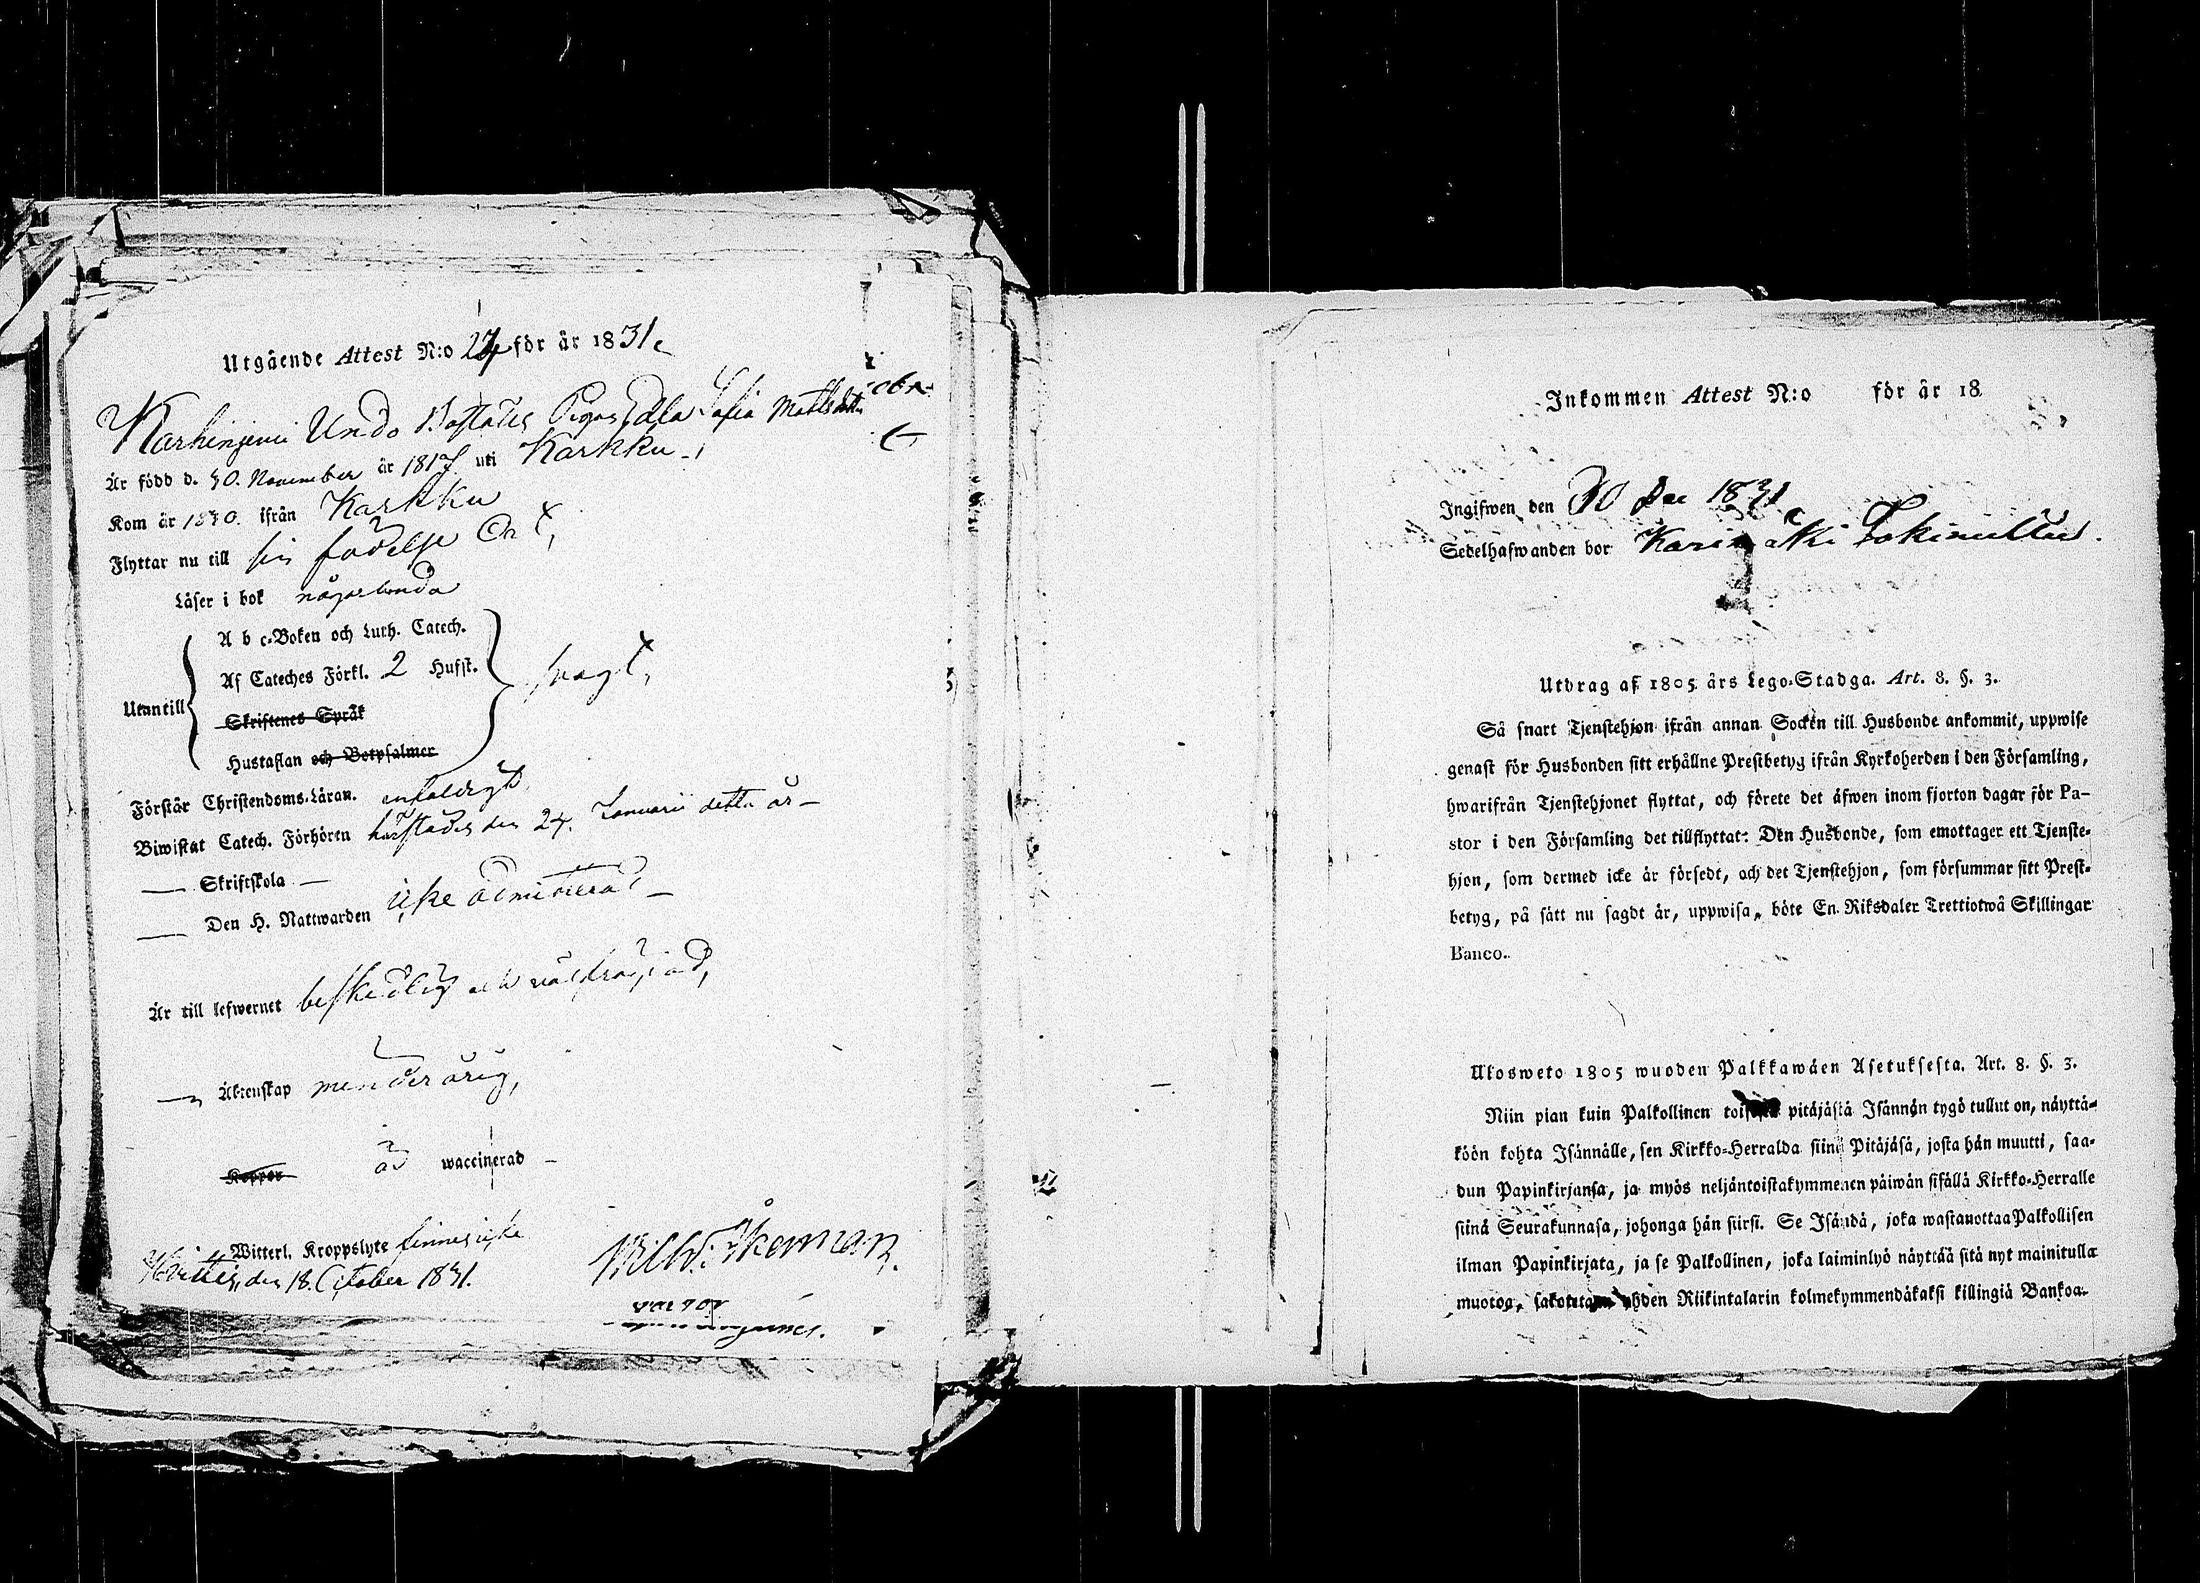 Utgående Attest N:o 24 för år 1831
Karhinjemi Undo Boställes Pigan Edla Sofia Mattsdotter
Är född d. 30. November år 1817 uti Karkku
Kom år 1830. ifrån Karkku
Flyttar nu till sin födelse Ort,
Läser i bok någorlunda
A b c-Boken och Luth. Catech.
Af Cateches Förkl. 2 Hufst.
Utantill svagt,
Skriftenes Språk
Hustaflan och Botpsalmer
Förstår Christendoms-Läran. enfaldigt
Biwistat Catech. Förhören härstädes den 24. Januarii detta år –
— Skriftskola —
— Den H. Nattwarden icke admitterad —
Är till lefwernet beskedlig och välfräjdad,
— Äktenskap minderårig,
Koppor är waccinerad —
Witterl. Kroppslyte finnes icke
Hvittis, den 18. October 1831.
Wilh. Åkerman.
Inkommen Attest N:o för år 18
Ingifwen den 30 Dec 1831
Sedelhafwanden bor Karimäki
Utdrag af 1805 års Lego-Stadga. Art. 8. §. 3.
Så snart Tjenstehjon ifrån annan Socken till Husbonde ankommit, uppwise
genast för Husbonden sitt erhållne Prestbetyg ifrån Kyrkoherden i den Församling,
hwarifrån Tjenstehjonet flyttat, och förete det äfwen inom fjorton dagar för Pa-
stor i den Församling det tillflyttat: Den Husbonde, som emottager ett Tjenste-
hjon, som dermed icke är försedt, och det Tjenstehjon, som försummar sitt Prest-
betyg, på sätt nu sagdt är, uppwisa, böte En Riksdaler Trettiotwå Skillingar
Banco.
Ulosweto 1805 wuoden Palkkawäen Asetuksesta. Art. 8. §. 3.
Niin pian kuin Palkollinen toisesta pitäjästä Isännän tygö tullut on, näyttä-
köön kohta Isännälle, sen Kirkko-Herralda siinä Pitäjäsä, josta hän muutti, saa-
dun Papinkirjansa, ja myös neljäntoistakymmenen päiwän sisällä Kirkko-Herralle
siinä Seurakunnasa, johonga hän siirsi. Se Isändä, joka wastanottaa Palkollisen
ilman Papinkirjata, ja se Palkollinen, joka laiminlyö näyttää sitä nyt mainitulla
muotoa, sakotetaan yhden Riikintalarin kolmekymmendäkaksi killingiä Bankoa.